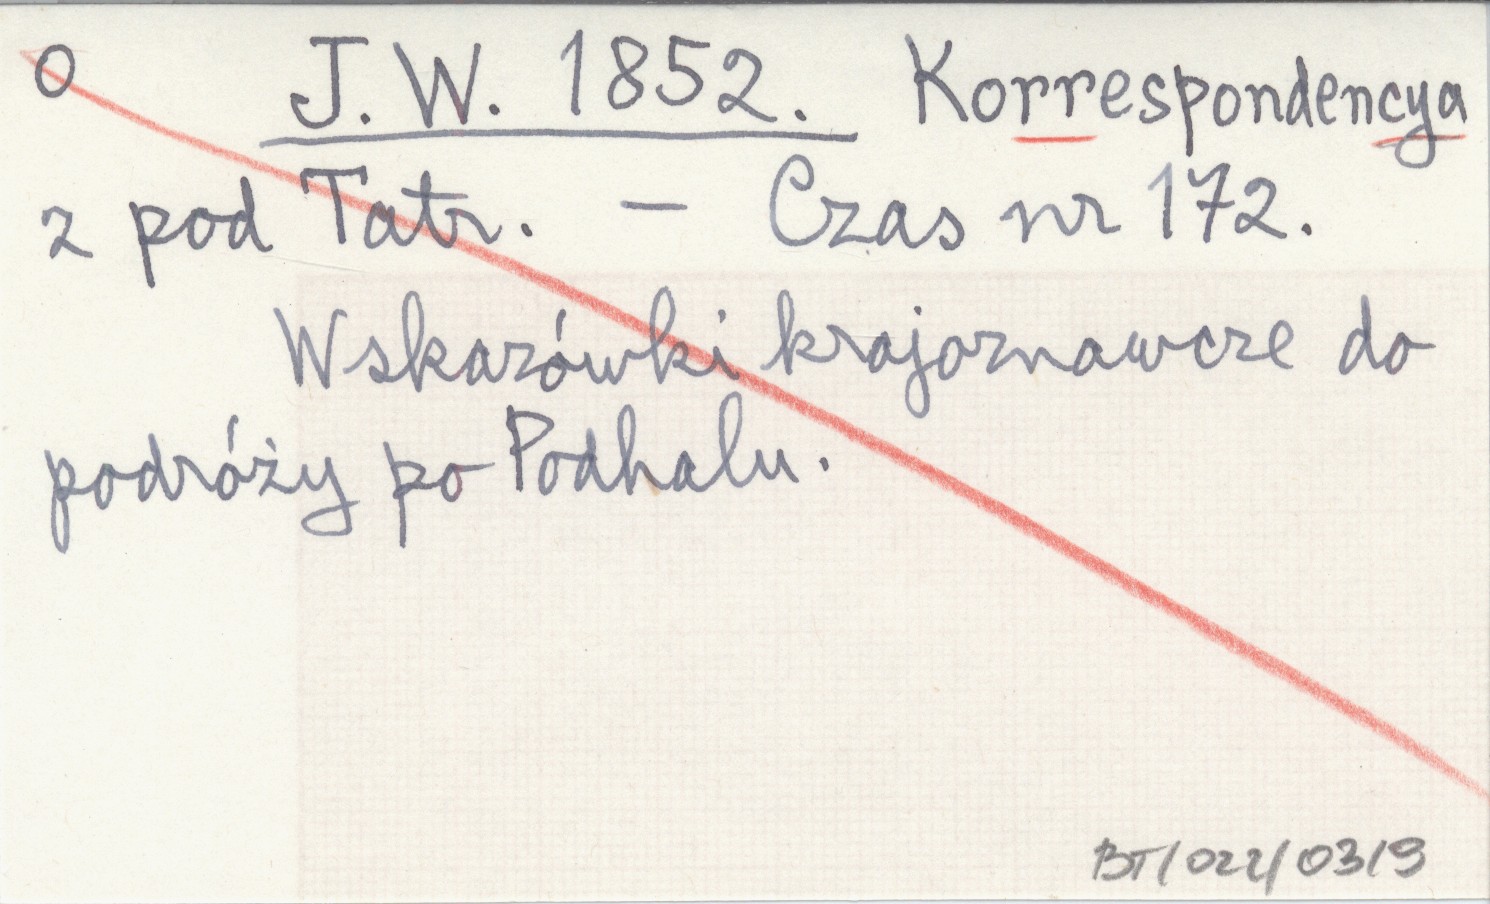 O J. W. 1852. Korrespondencya
z pod Tatr. — Czas nr 172.
Wskazówki krajoznawcze do
podróży po Podhalu.
BT/022/03/9